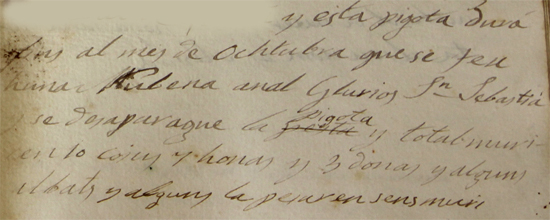 y esta pigota durá
fins al mes de Ochtubra que se feu
una Nubena anal Glurios Sn Sebastiá
y se desaparague la pigota y total muri-
ren 10 y honas y 3 donas y alguns
Albats y alguns la pasaren sens muri